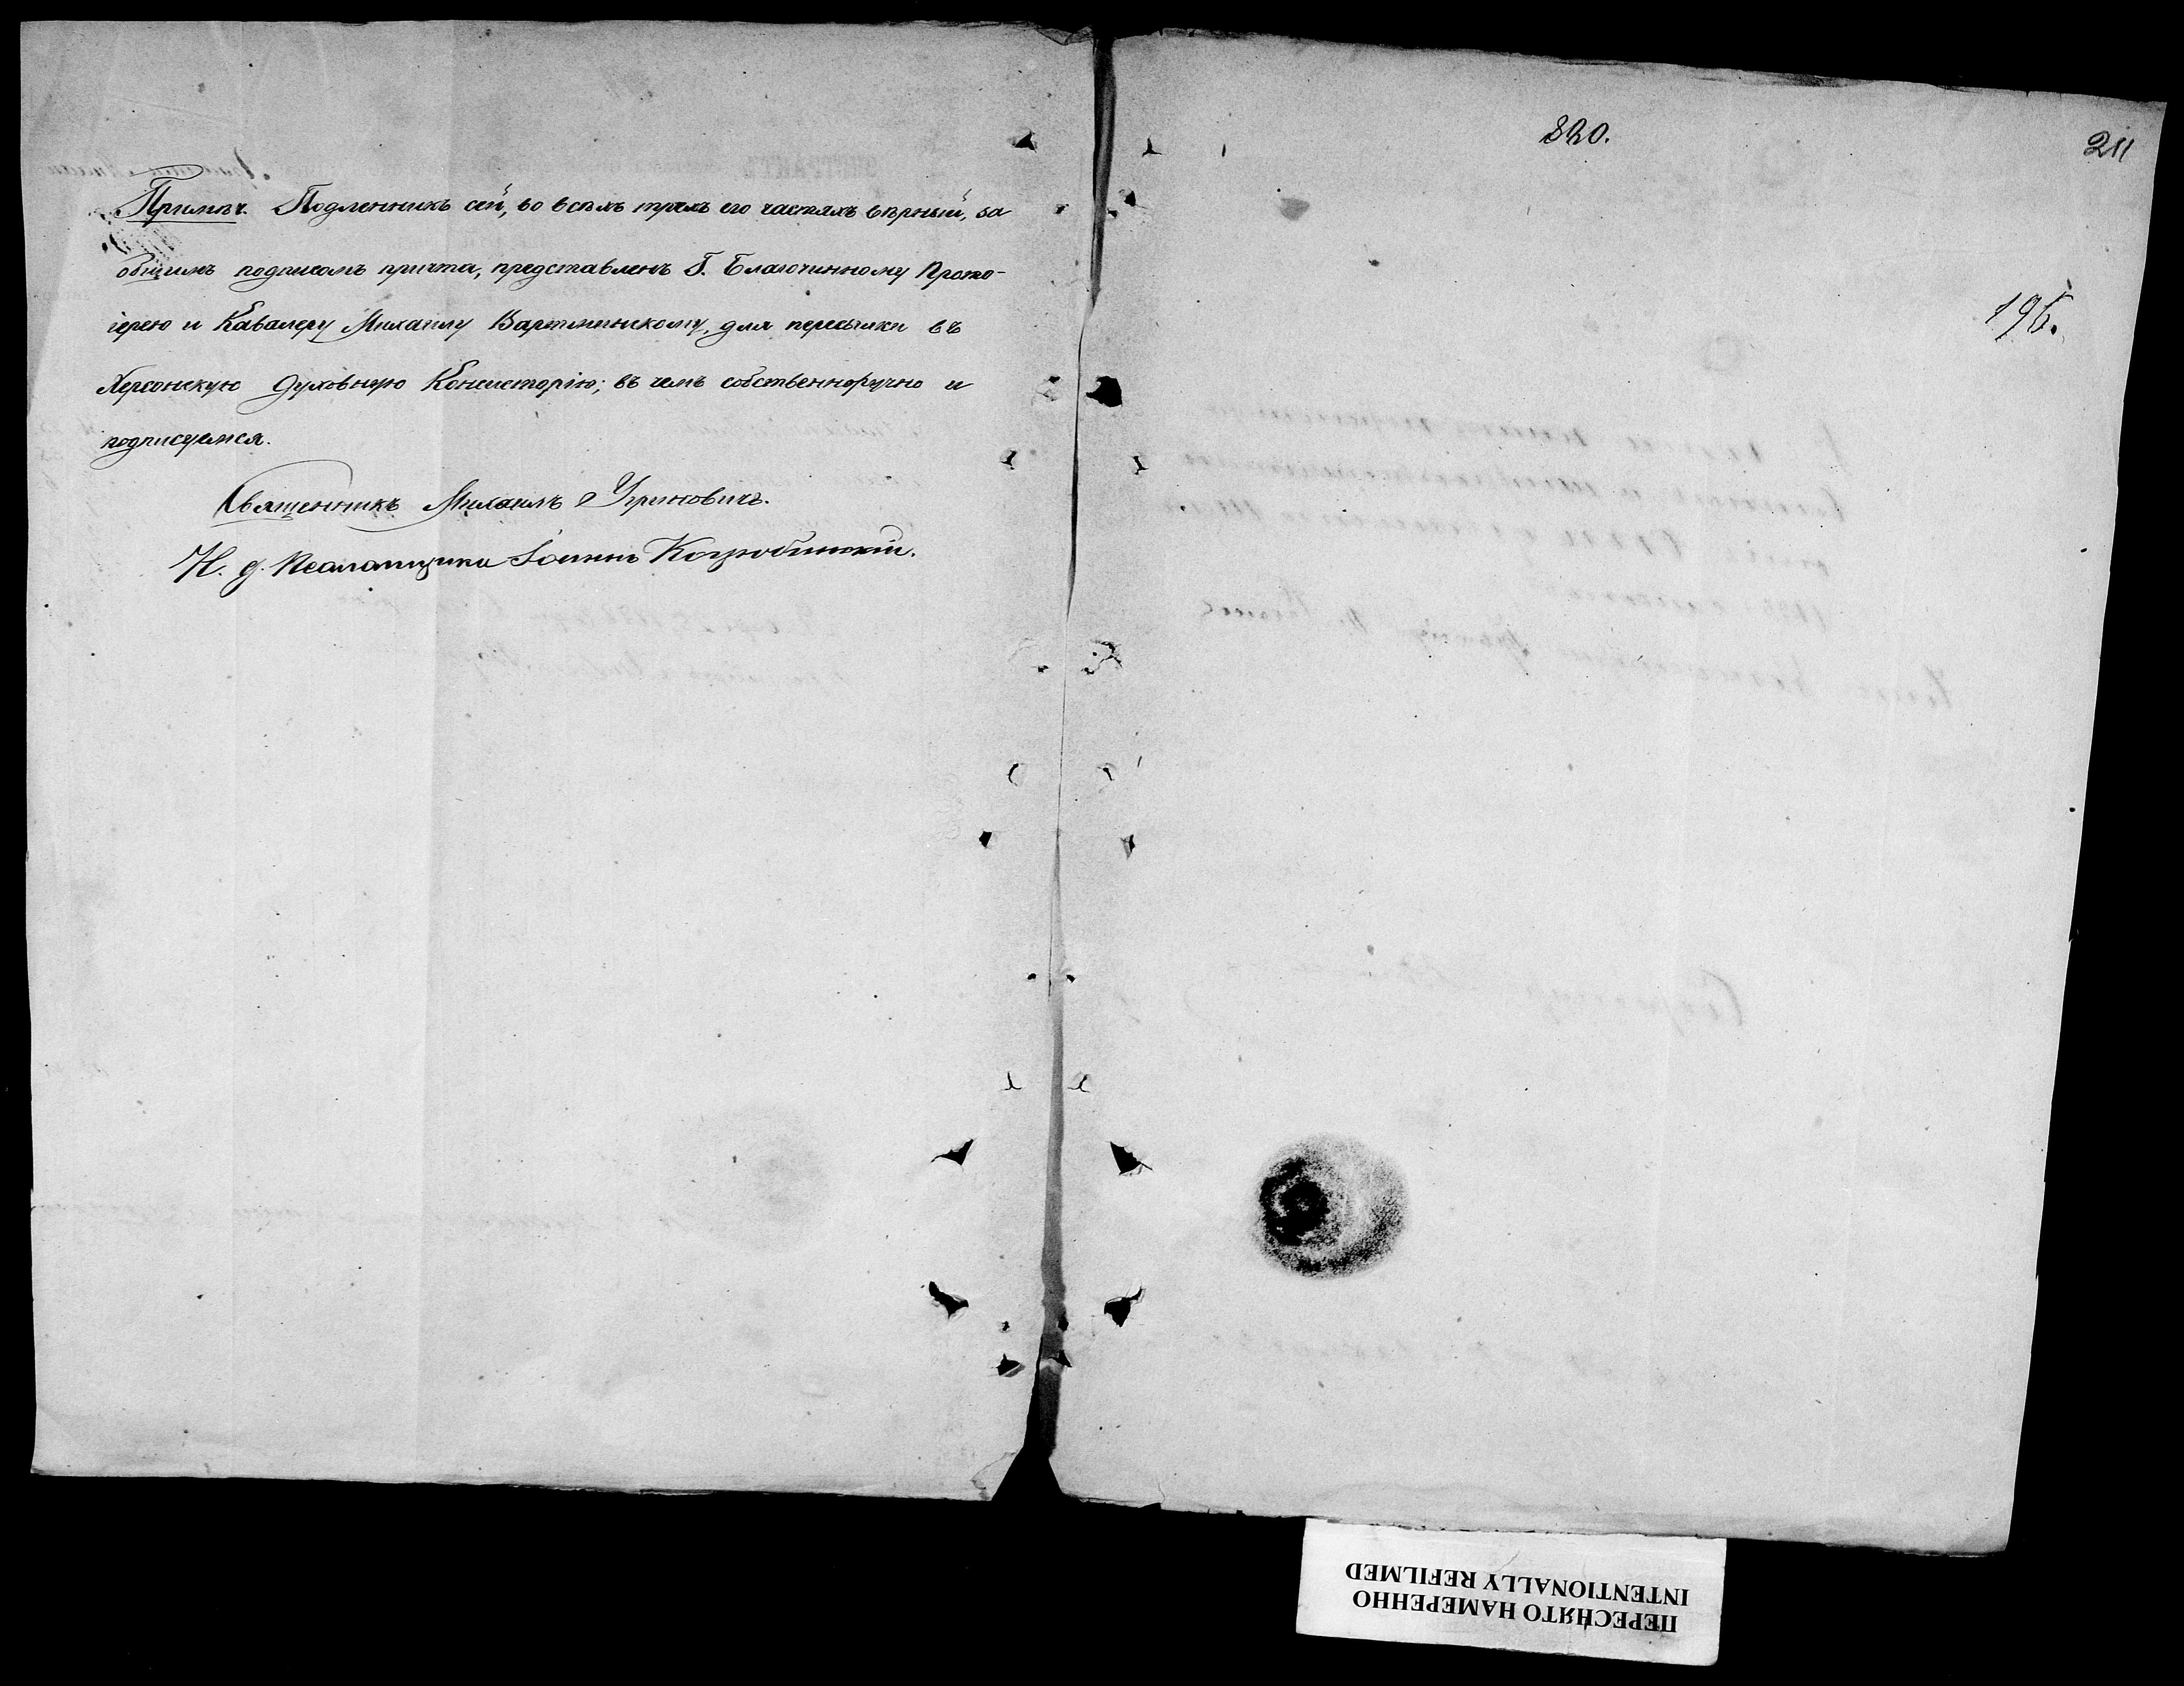 Примѣч. Подленникъ сей, во всѣхъ трехъ его частяхъ вѣрный, за
общимъ подписомъ причта, представленъ Г. Благочинному Прото-
іерею и Кавалеру Михаилу Вартминскому, для пересылки въ
Херсонскую Духовную Консисторію; въ чемъ собственноручно и
подписуемся.
Священникъ Михаилъ Угриновичъ.
И. д. Псаломщика Іоаннъ
820.
211
195.
ПЕРЕСНЯТО НАМЕРЕННО
INTENTIONALLY REFILMED